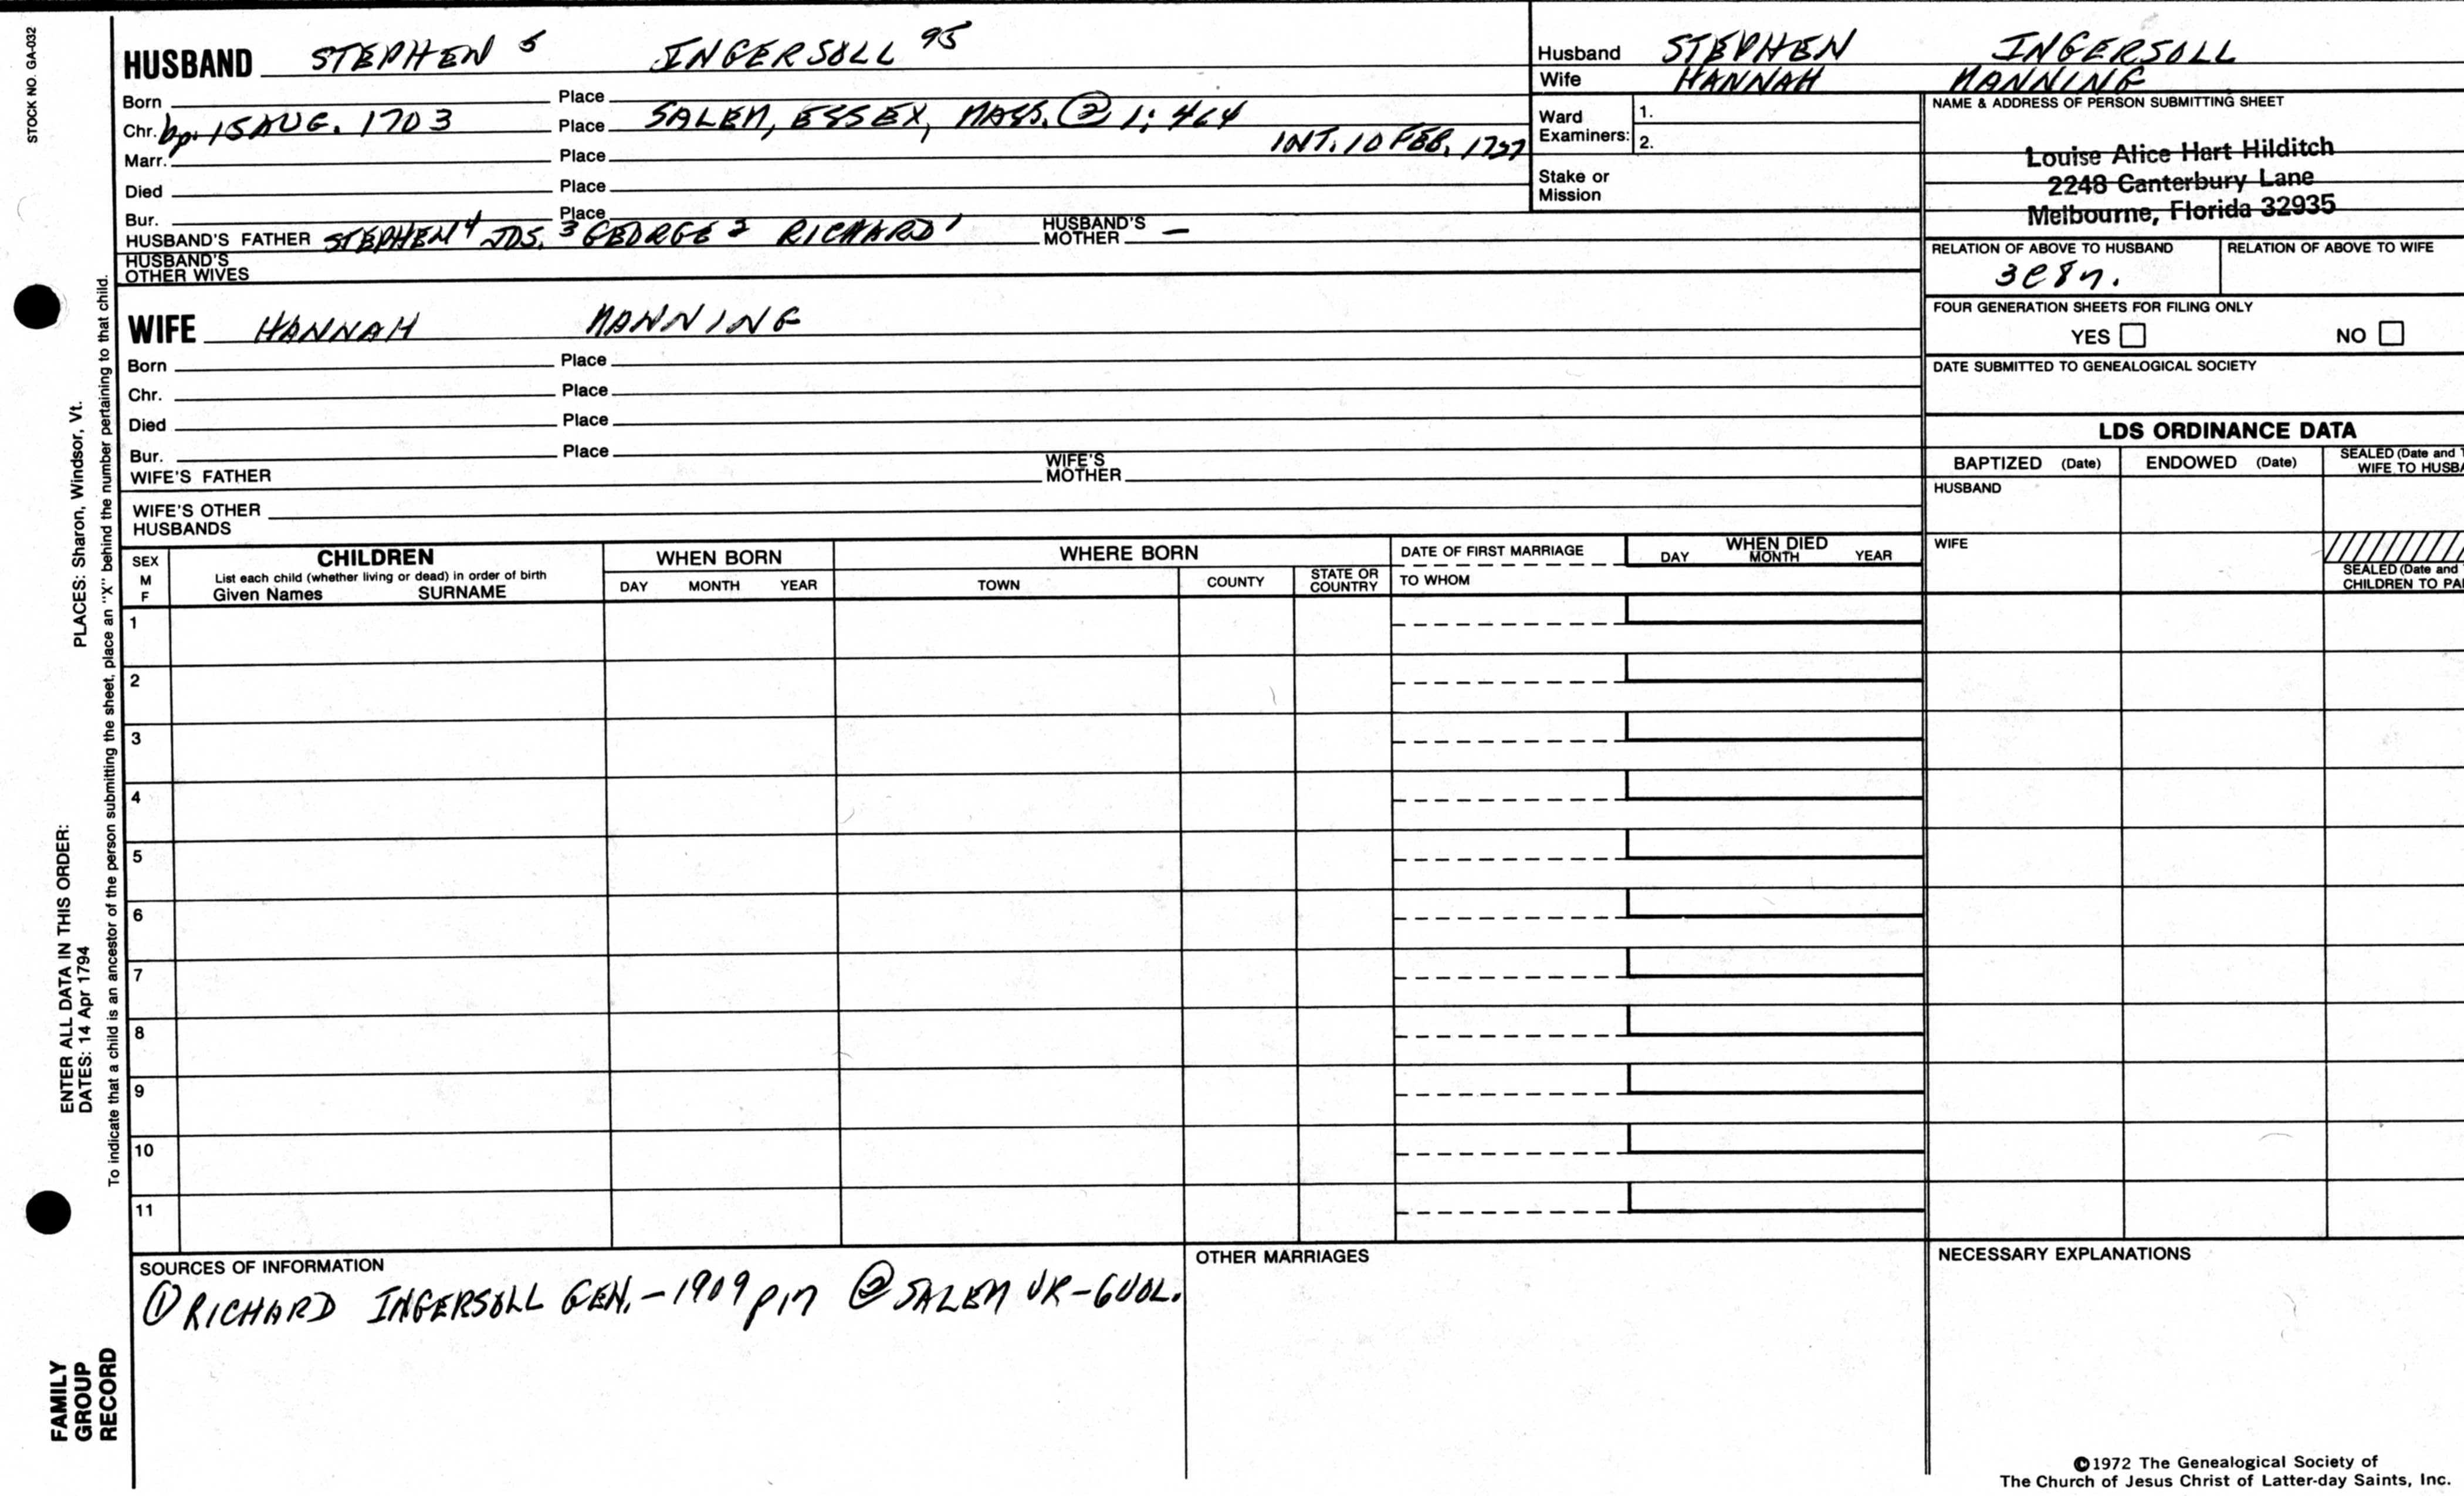 STOCK NO. GA-032
HUSBAND STEPHEN 5 INGERSOLL 95
Born Place
Chr. bp. 15 AUG. 1703 Place SALEM, ESSEX, MASS. ② 1: 464
Marr. Place INT. 10 FEB. 1727
Died Place
Bur. Place
HUSBAND'S FATHER STEPHEN 4 JOS. 3 GEORGE 2 RICHARD 1 HUSBAND'S MOTHER —
HUSBAND'S OTHER WIVES
WIFE HANNAH MANNING
Born Place
Chr. Place
Died Place
Bur. Place
WIFE'S FATHER WIFE'S MOTHER
WIFE'S OTHER HUSBANDS
Husband STEPHEN INGERSOLL
Wife HANNAH MANNING
Ward Examiners: 1.
2.
Stake or Mission
NAME & ADDRESS OF PERSON SUBMITTING SHEET
Louise Alice Hart Hilditch
2248 Canterbury Lane
Melbourne, Florida 32935
RELATION OF ABOVE TO HUSBAND RELATION OF ABOVE TO WIFE
3c8n.
FOUR GENERATION SHEETS FOR FILING ONLY
YES NO
DATE SUBMITTED TO GENEALOGICAL SOCIETY
LDS ORDINANCE DATA
BAPTIZED (Date) ENDOWED (Date) SEALED (Date and
WIFE TO
HUSBAND
WIFE
SEALED (Date and
CHILDREN TO
SEX M F
CHILDREN
List each child (whether living or dead) in order of birth
Given Names SURNAME
WHEN BORN
DAY MONTH YEAR
WHERE BORN
TOWN COUNTY STATE OR COUNTRY
DATE OF FIRST MARRIAGE
TO WHOM
WHEN DIED
DAY MONTH YEAR
1
2
3
4
5
6
7
8
9
10
11
SOURCES OF INFORMATION
① RICHARD INGERSOLL GEN. – 1909 p 17 ② SALEM VR – 6 VOL.
OTHER MARRIAGES
NECESSARY EXPLANATIONS
ENTER ALL DATA IN THIS ORDER:
DATES: 14 Apr 1794 PLACES: Sharon, Windsor, Vt.
To indicate that a child is an ancestor of the person submitting the sheet, place an "X" behind the number pertaining to that child.
FAMILY
GROUP
RECORD
©1972 The Genealogical Society of
The Church of Jesus Christ of Latter-day Saints, Inc.